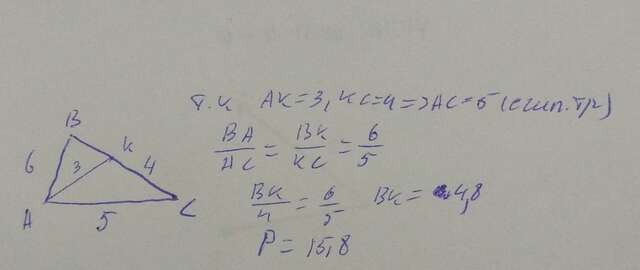 т.к AK=3, KC=4 => AC=5 (египт.тр)
B
BA/AC = BK/KC = 6/5
K
6
3
4
BK/4 = 6/5 BK= 4,8
A
5
C
P = 15,8